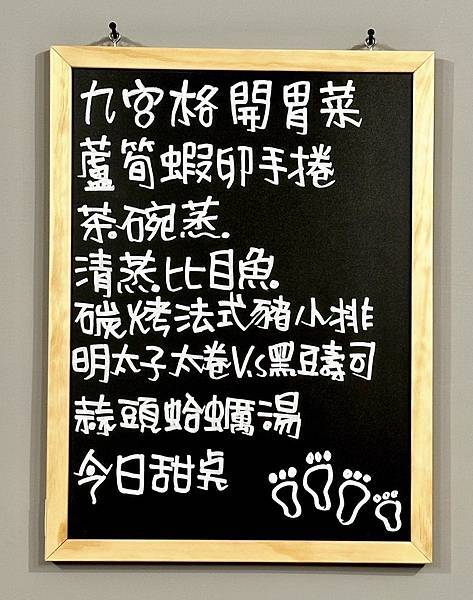 九宮格開胃菜
蘆筍蝦卵手捲
茶碗蒸.
清蒸比目魚
碳烤法式豬小排
明太子太卷V.S黑豆壽司
蒜頭蛤蠣湯
今日甜点